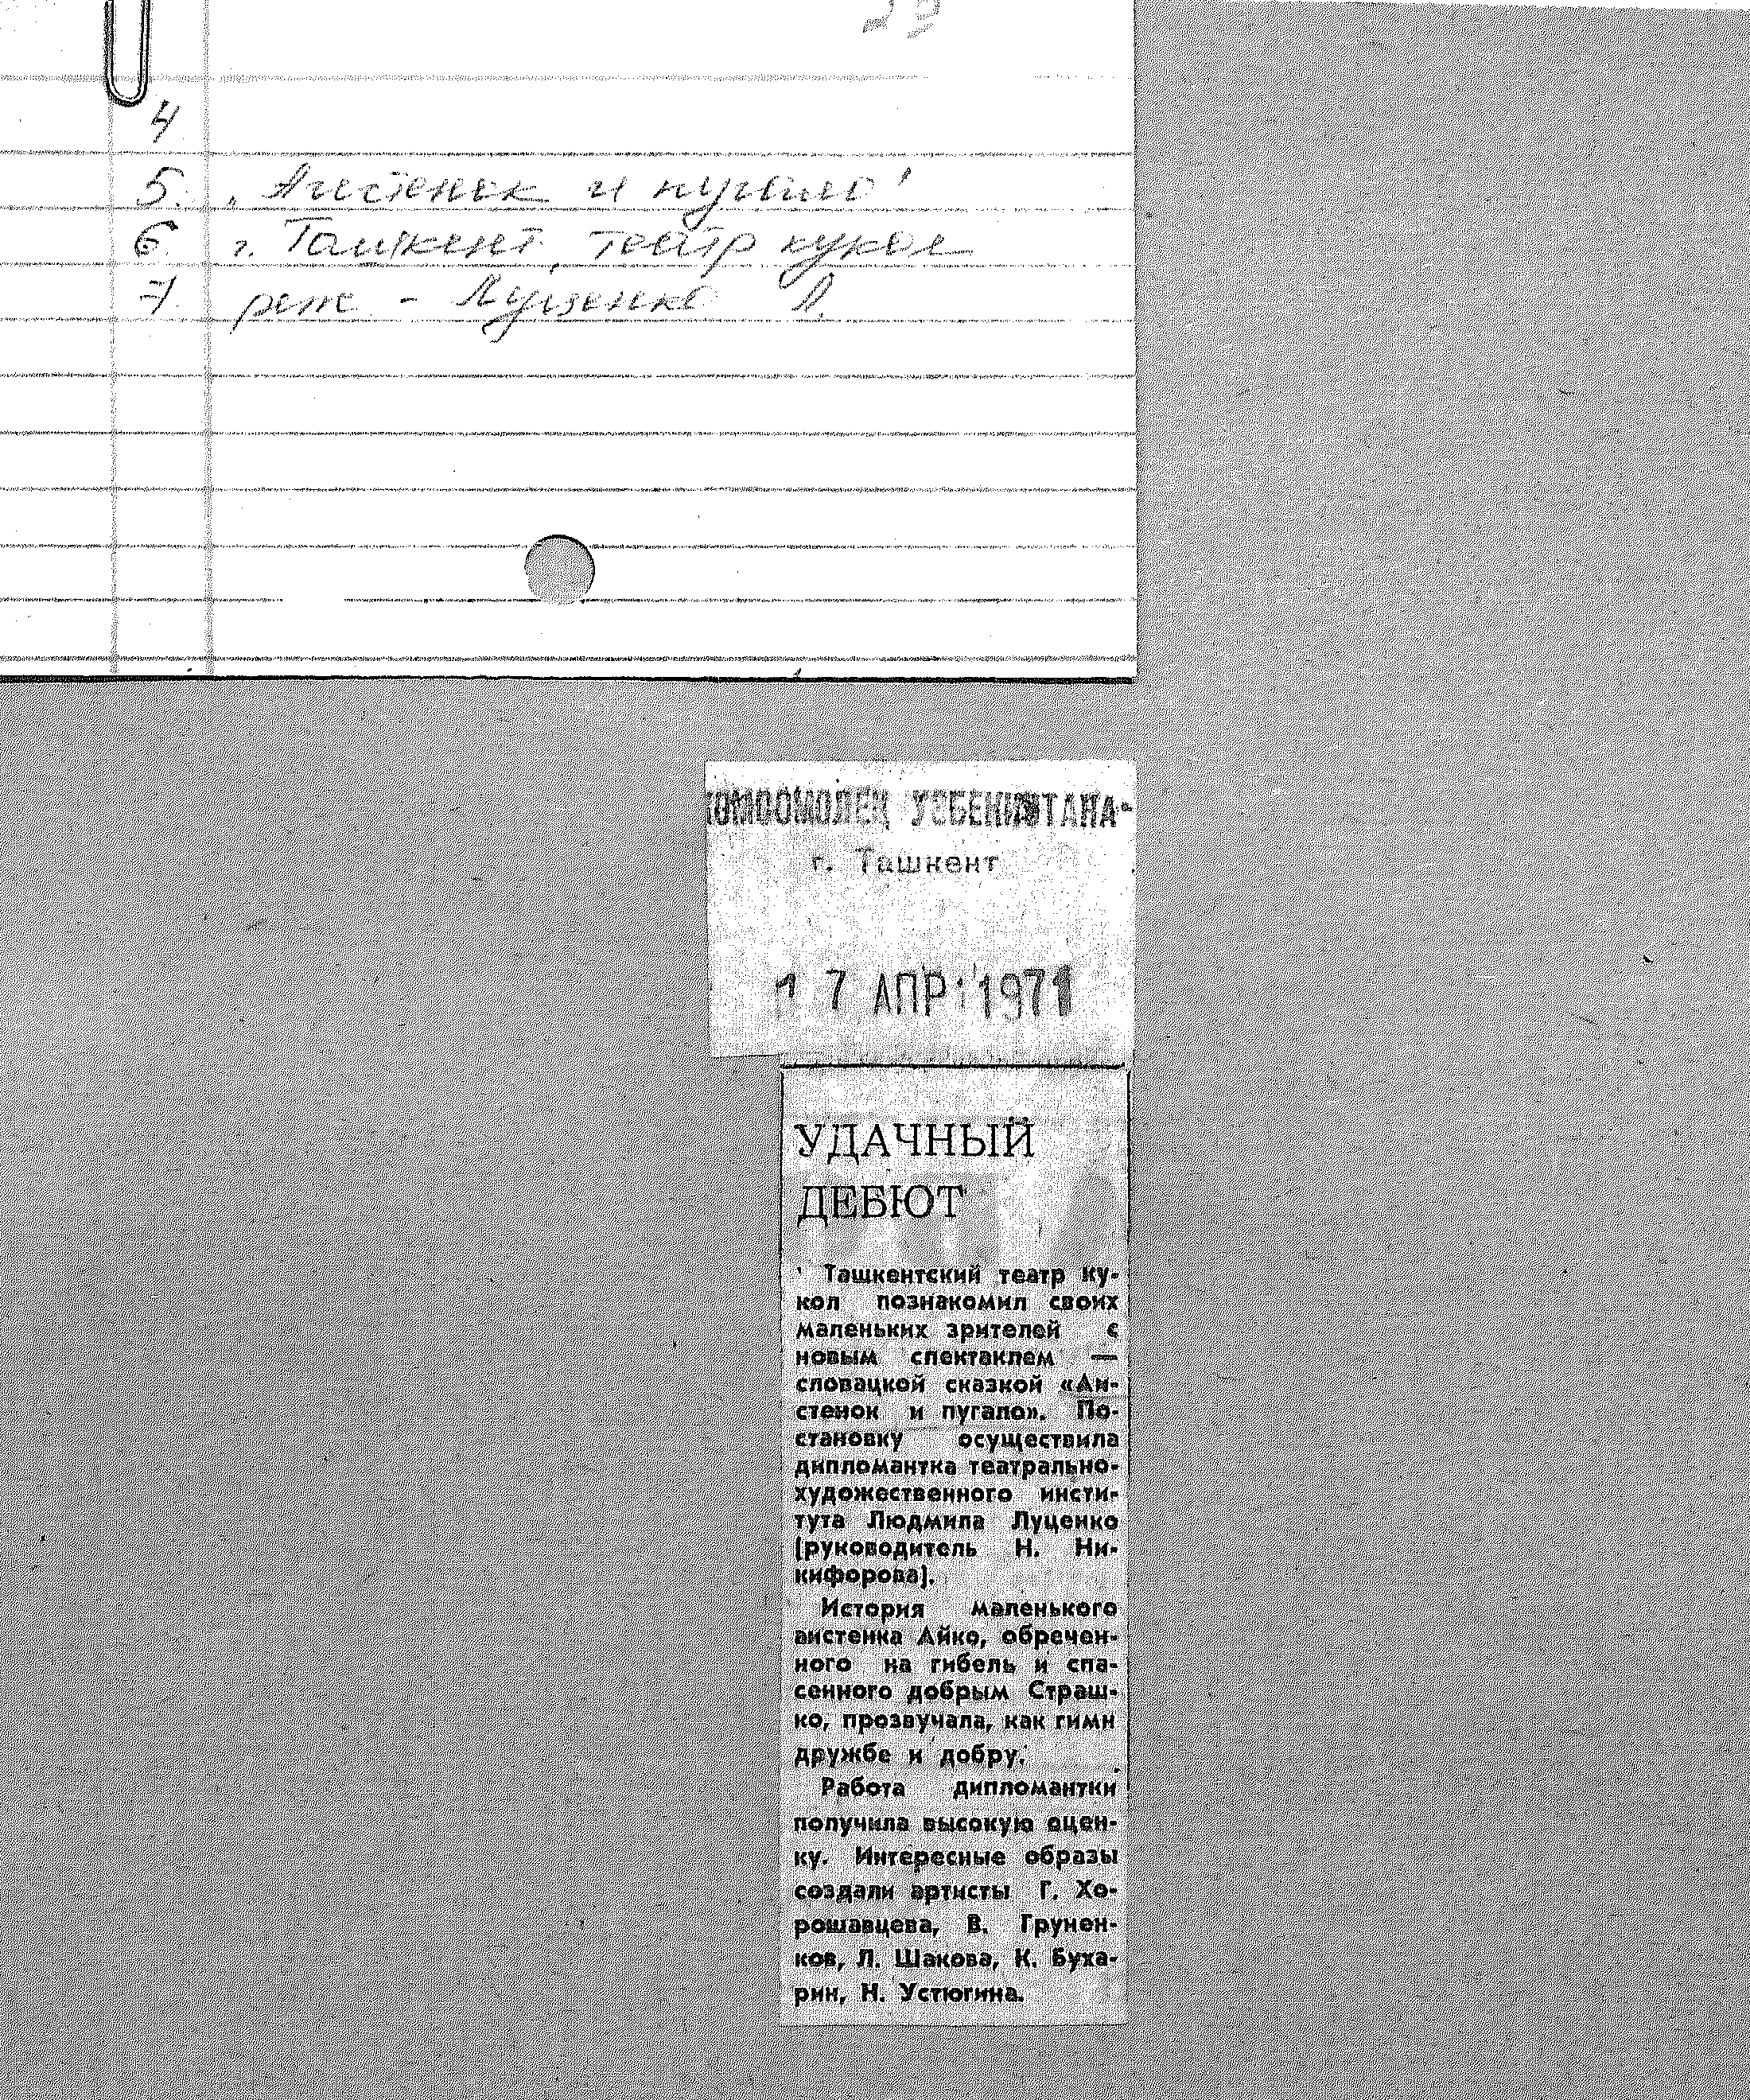 4
5. „Аистенок и пугало"
6. г. Ташкент, театр кукол
7. реж - Луценко Л.
КОМСОМОЛЕЦ УЗБЕКИСТАНА-
г. Ташкент
17 АПР 1971
УДАЧНЫЙ
ДЕБЮТ
Ташкентский театр ку-
кол познакомил своих
маленьких зрителей с
новым спектаклем —
словацкой сказкой «Аи-
стенок и пугало». По-
становку осуществила
дипломантка театрально-
художественного инсти-
тута Людмила Луценко
(руководитель Н. Ни-
кифорова).
История маленького
аистенка Айко, обречен-
ного на гибель и спа-
сенного добрым Страш-
ко, прозвучала, как гимн
дружбе и добру.
Работа дипломантки
получила высокую оцен-
ку. Интересные образы
создали артисты Г. Хо-
рошавцева, В. Грунен-
ков, Л. Шакова, К. Буха-
рин, Н. Устюгина.